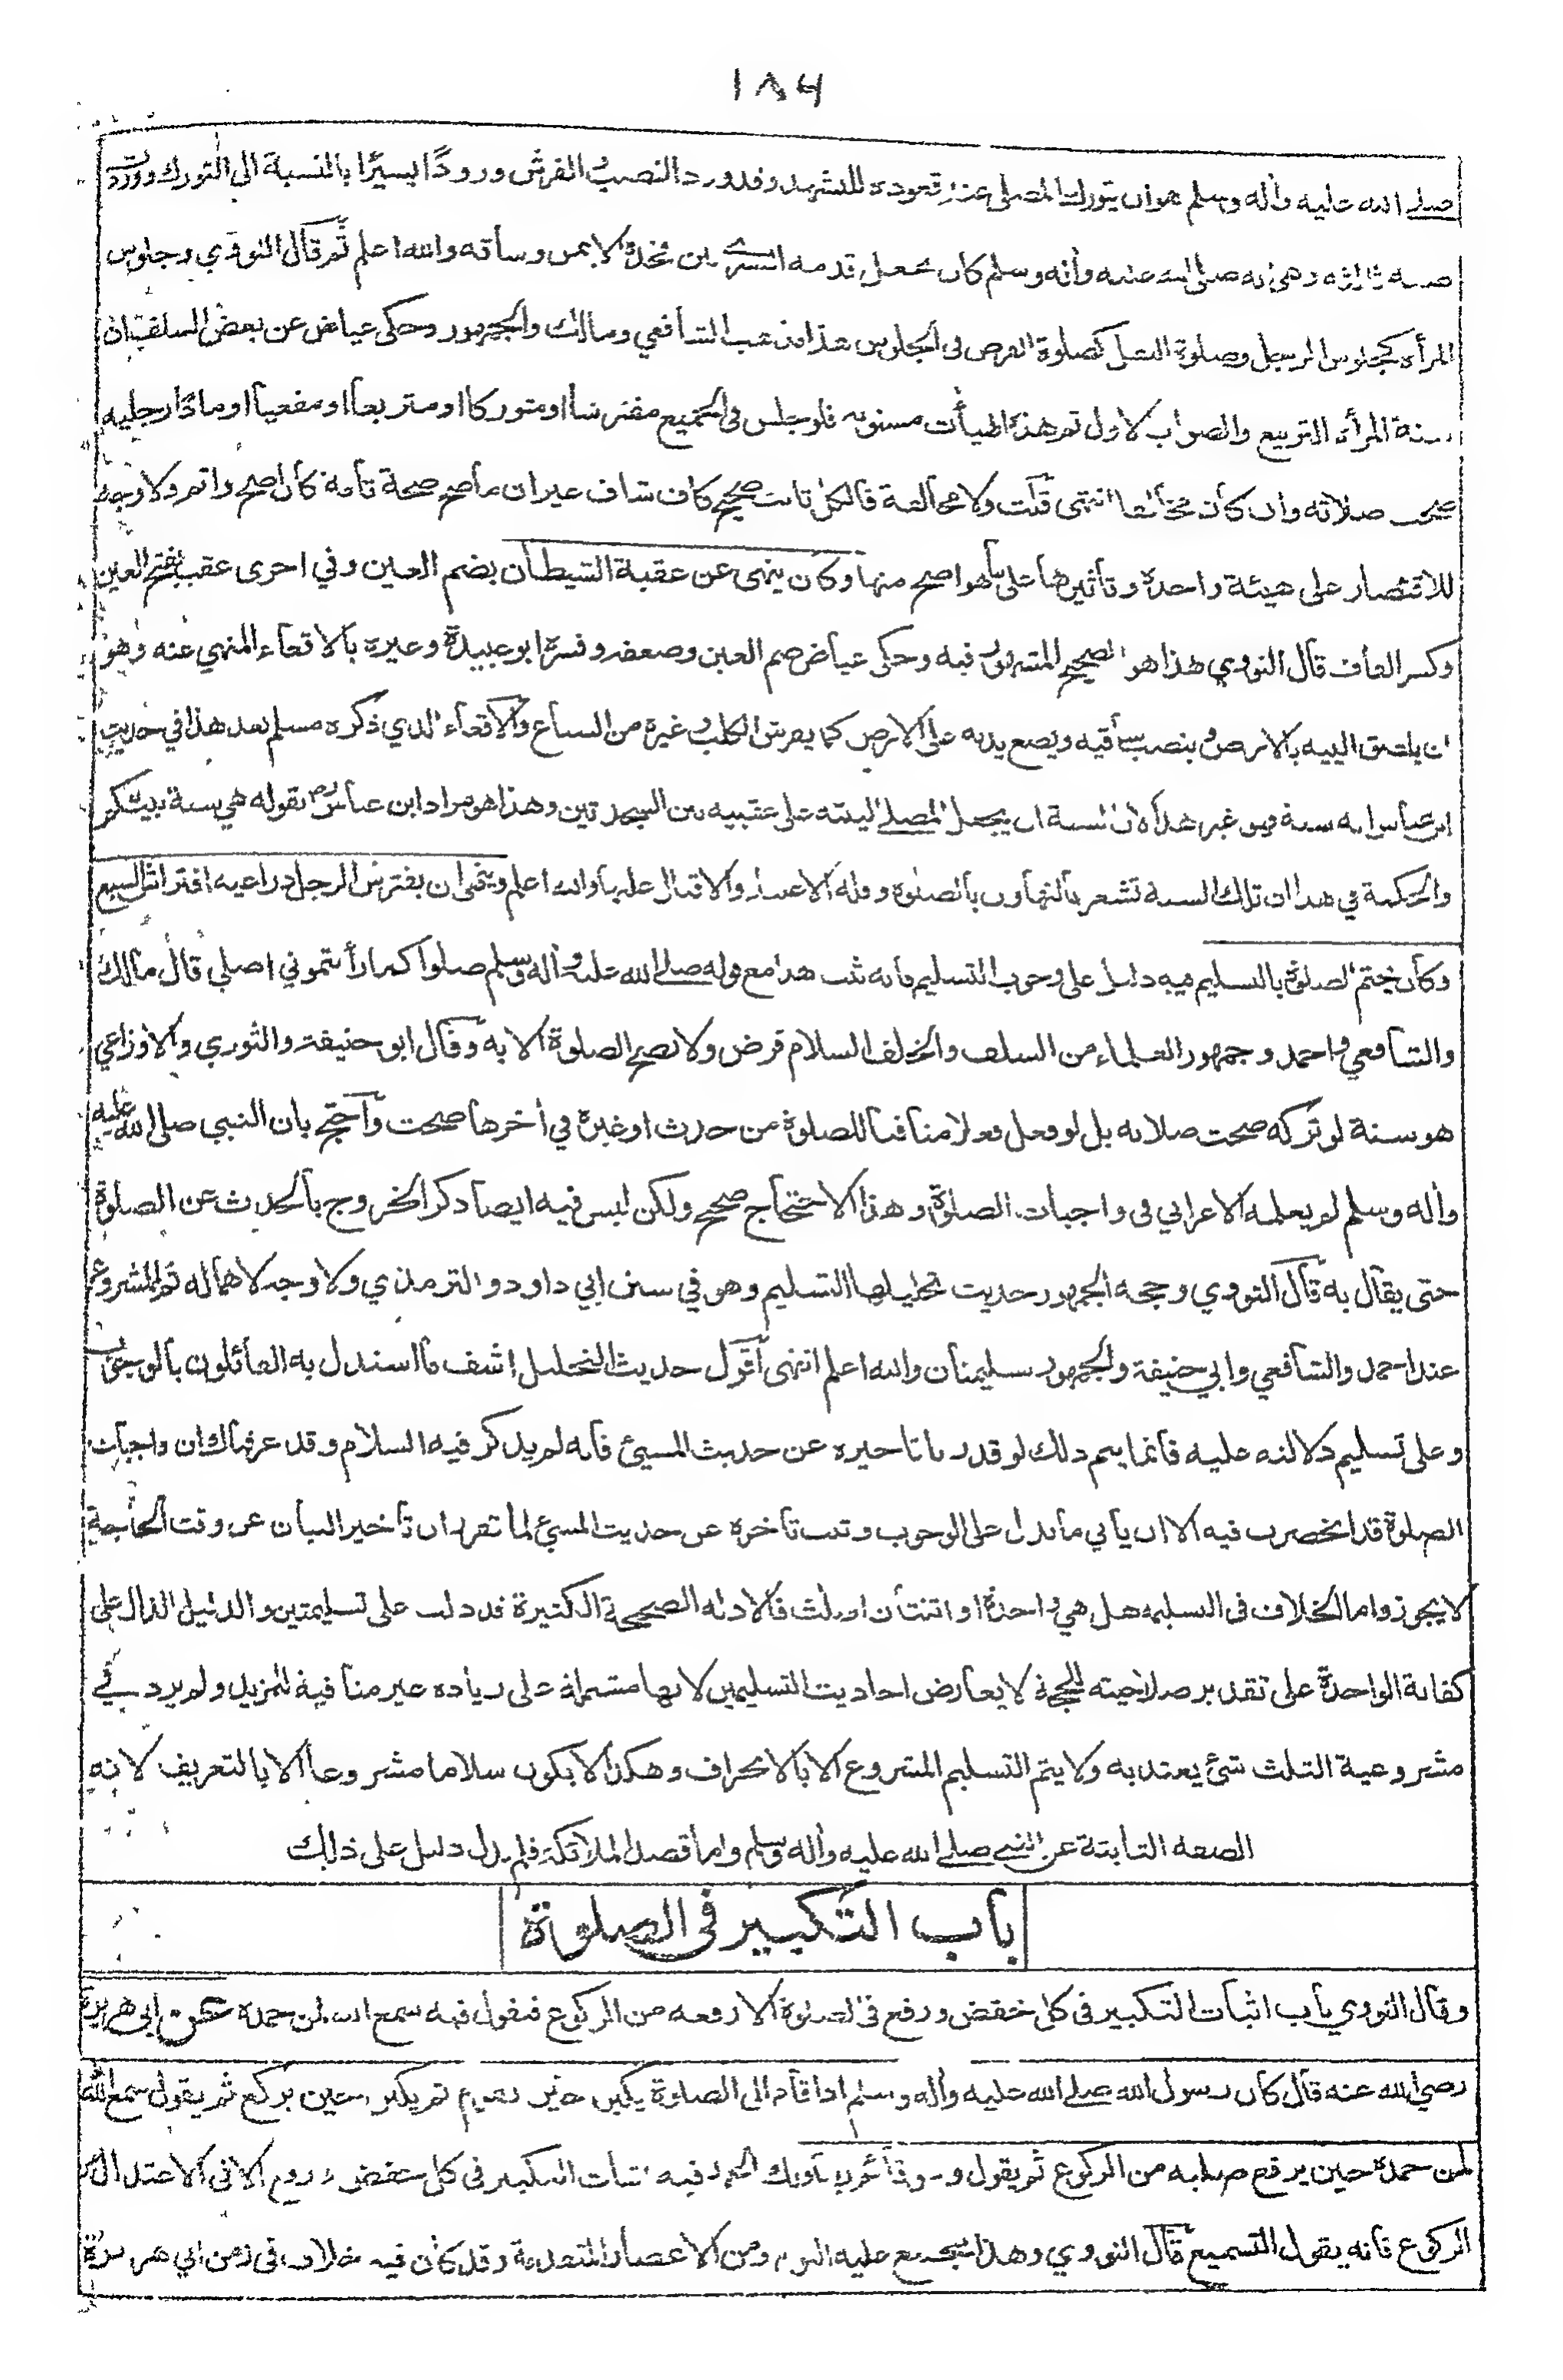 ١٨٦
صلى الله عليه وأله وسلم هو ان يتورك المصلى عند قعوده للتشهد وقد ورد النصب والفرش ورودًا يسيرًا بالنسبة الى التورك ووردت
صفة ثالثة وهى انه صلى الله عليه وأله وسلم كان يجعل قدمه اليسرى بين فخذه الايمن وساقه والله اعلم ثم قال النووي وجلوس
المرأة كجلوس الرجل وصلوة النفل كصلوة الفرض فى الجلوس هذا مذهب الشافعي ومالك والجمهور وحكى عياض عن بعض السلف ان
سنة المرأة التربيع والصواب الاول ثم هذه الهيأت مسنونة فلو جلس فى الجميع مفترشا او متوركا او متربعا او مقعيا او مادًا رجليه
صحت صلاته وان كان مخالفا انتهى قلت ولا مخالفة فالكل ثابت صحيح كاف شاف غير ان ما صح صحة تامة كان اصح واتم ولا وجه
للاقتصار على هيئة واحدة وتأثيرها على ما هو اصح منها وكان ينهى عن عقبة الشيطان بضم العين وفي اخرى عقب بفتح العين
وكسر القاف قال النووي هذا هو الصحيح المشهور فيه وحكى عياض ضم العين وضعفه وفسره ابو عبيدة وغيره بالاقعاء المنهي عنه وهو
ان يلصق اليیه بالارض وينصب ساقيه ويضع يديه على الارض كما يفرش الكلب وغيره من السباع والاقعاء الذي ذكره مسلم بعد هذا في حديث
ابن عباس انه سنة فهو غير هذا لان السنة ان يجعل المصلى اليته على عقبيه بين السجدتين وهذا هو مراد ابن عباس بقوله هي سنة نبيكم
والحكمة في هذا ان تلك السنة تشعر بالتهاون بالصلوة وقلة الاعتداد والاقبال عليها والله اعلم وينهى ان يفترش الرجل ذراعيه افتراش السبع
وكان يختم الصلوة بالتسليم فيه دليل على وجوب التسليم فانه ثبت هذا مع قوله صلى الله عليه وأله وسلم صلوا كما رأيتموني اصلي قال مالك
والشافعي واحمد وجمهور العلماء من السلف والخلف السلام فرض ولا تصح الصلوة الا به وقال ابو حنيفة والثوري والاوزاعي
هو سنة لو تركه صحت صلاته بل لو فعل فعلا منافيا للصلوة من حدث او غيره في أخرها صحت واحتج بان النبي صلى الله عليه
وأله وسلم لم يعلمه الاعرابي فى واجبات الصلوة وهذا الاحتجاج صحيح ولكن ليس فيه ايضا ذكر الخروج بالحدث عن الصلوة
حتى يقال به قال النووي وحجة الجمهور حديث تحليلها التسليم وهو في سنن ابي داود والترمذي ولا وجه لاهماله ثم المشروع
عند احمد والشافعي وابي حنيفة والجمهور تسليمتان والله اعلم انتهى اقول حديث التحليل اشف ما استدل به القائلون بالوجوب
وعلى تسليم دلالته عليه فانما يتم ذلك لو قدرنا تاخيره عن حديث المسيئ فانه لم يذكر فيه السلام وقد عرفناك ان واجبات
الصلوة قد انحصرت فيه الا ان يأتي ما يدل على الوجوب وثبت تأخره عن حديث المسيئ لما تقرر ان تأخير البيان عن وقت الحاجة
لا يجوز واما الخلاف فى التسليمة هل هي واحدة او اثنتان او ثلث فالادلة الصحيحة الكثيرة قد دلت على تسليمتين والدليل الدال على
كفاية الواحدة على تقدير صلاحيته للحجة لا يعارض احاديث التسليمتين لانها مشتملة على زيادة غير منافية للمزيد ولم يرد في
مشروعية الثلث شئ يعتد به ولا يتم التسليم المشروع الا بالانحراف وهكذا لا يكون سلاما مشروعا الا بالتعريف لانه
الصفة الثابتة عن النبى صلى الله عليه وأله وسلم واما قصد الملائكة فلم يدل دليل على ذلك
باب التكبير فى الصلوة
وقال النووي باب اثبات التكبير فى كل خفض ورفع فى الصلوة الا رفعه من الركوع فيقول فيه سمع الله لمن حمده عن ابى هريرة
رضي الله عنه قال كان رسول الله صلى الله عليه وأله وسلم اذا قام الى الصلوة يكبر حين يقوم ثم يكبر حين يركع ثم يقول سمع الله
لمن حمده حين يرفع صلبه من الركوع ثم يقول وهو قائم ربنا ولك الحمد فيه اثبات التكبير فى كل خفض ورفع الا فى الاعتدال من
الركوع فانه يقول التسميع قال النووي وهذا مجمع عليه اليوم ومن الاعصار المتقدمة وقد كان فيه خلاف فى زمن ابي هريرة